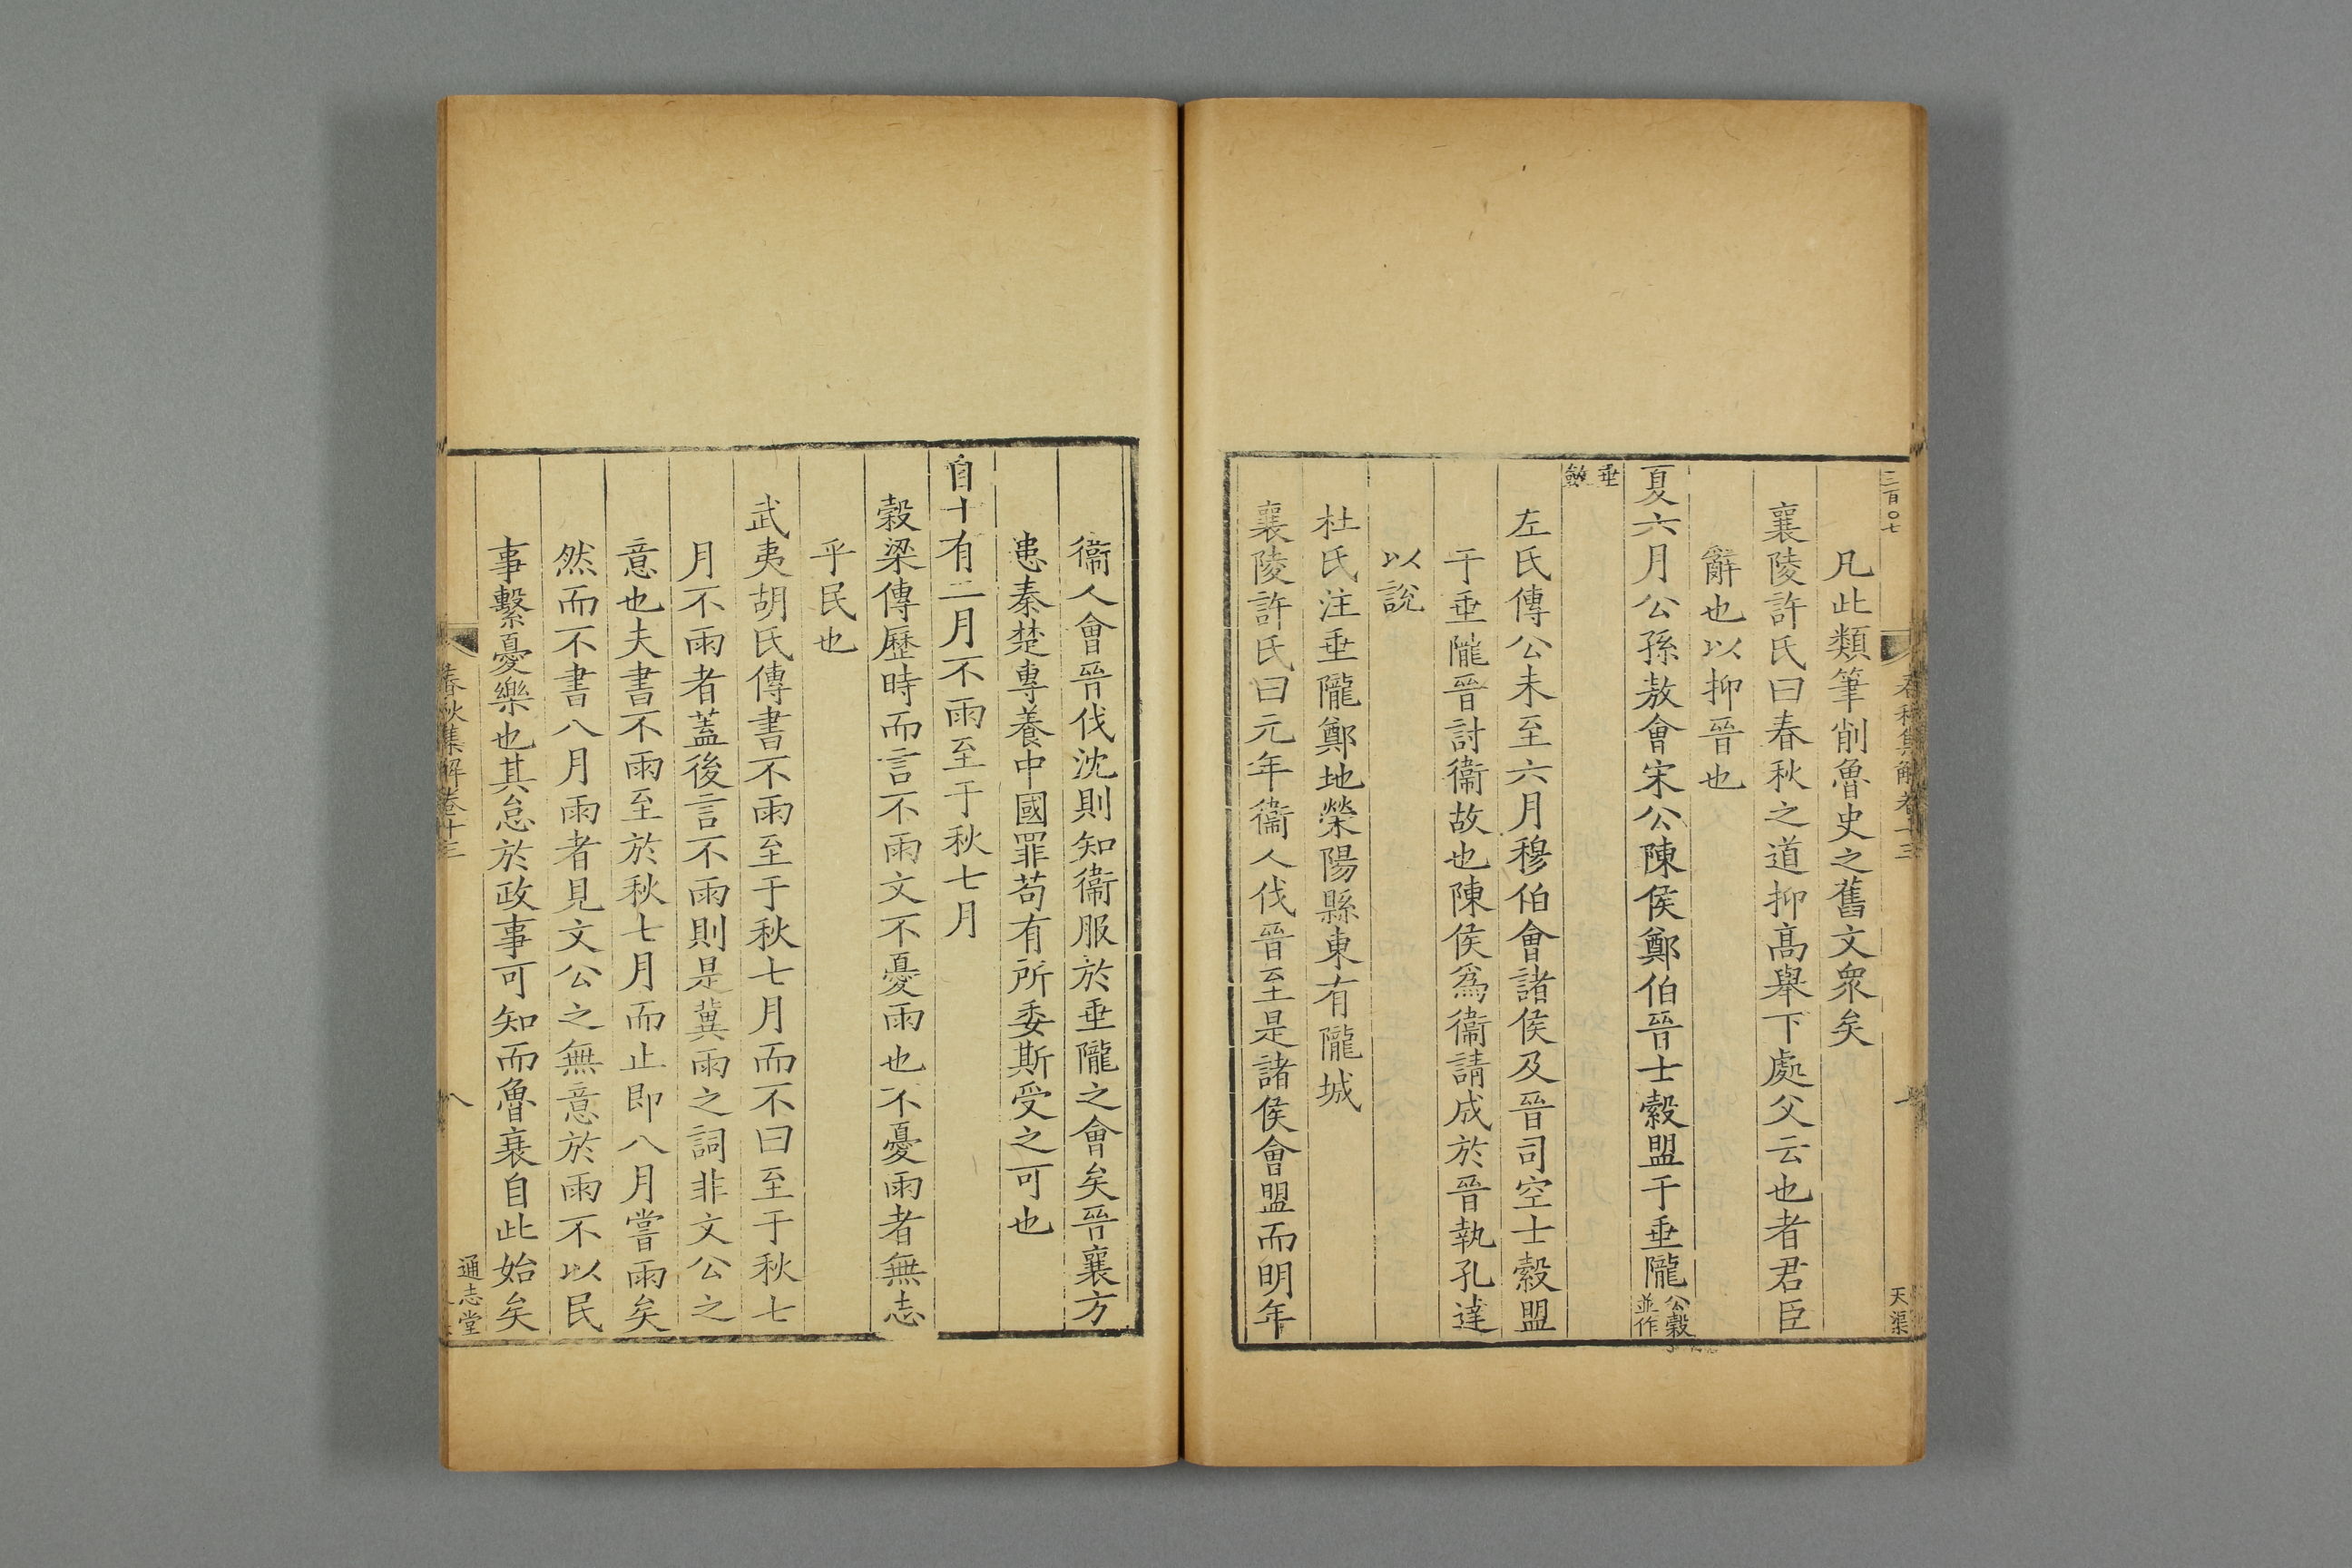 三百〇七
春秋集解卷十三
天渠
凡此類筆削魯史之舊文衆矣
襄陵許氏曰春秋之道抑髙舉下處父云也者君臣
辭也以抑晉也
夏六月公孫敖會宋公陳侯鄭伯晉士縠盟于垂隴公縠並作
垂斂
左氏傳公未至六月穆伯會諸侯及晉司空士縠盟
于垂隴晉討衞故也陳侯爲衞請成於晉執孔達
以說
杜氏注垂隴鄭地滎陽縣東有隴城
襄陵許氏曰元年衞人伐晉至是諸侯會盟而明年
衞人會晉伐沈則知衞服於垂隴之會矣晉襄方
患秦楚專養中國罪苟有所委斯受之可也
自十有二月不雨至于秋七月
穀梁傳歷時而言不雨文不憂雨也不憂雨者無志
乎民也
武夷胡氏傳書不雨至于秋七月而不曰至于秋七
月不雨者蓋後言不雨則是冀雨之詞非文公之
意也夫書不雨至於秋七月而止即八月嘗雨矣
然而不書八月雨者見文公之無意於雨不以民
事繫憂樂也其怠於政事可知而魯衰自此始矣
春秋集解卷十三
八
通志堂